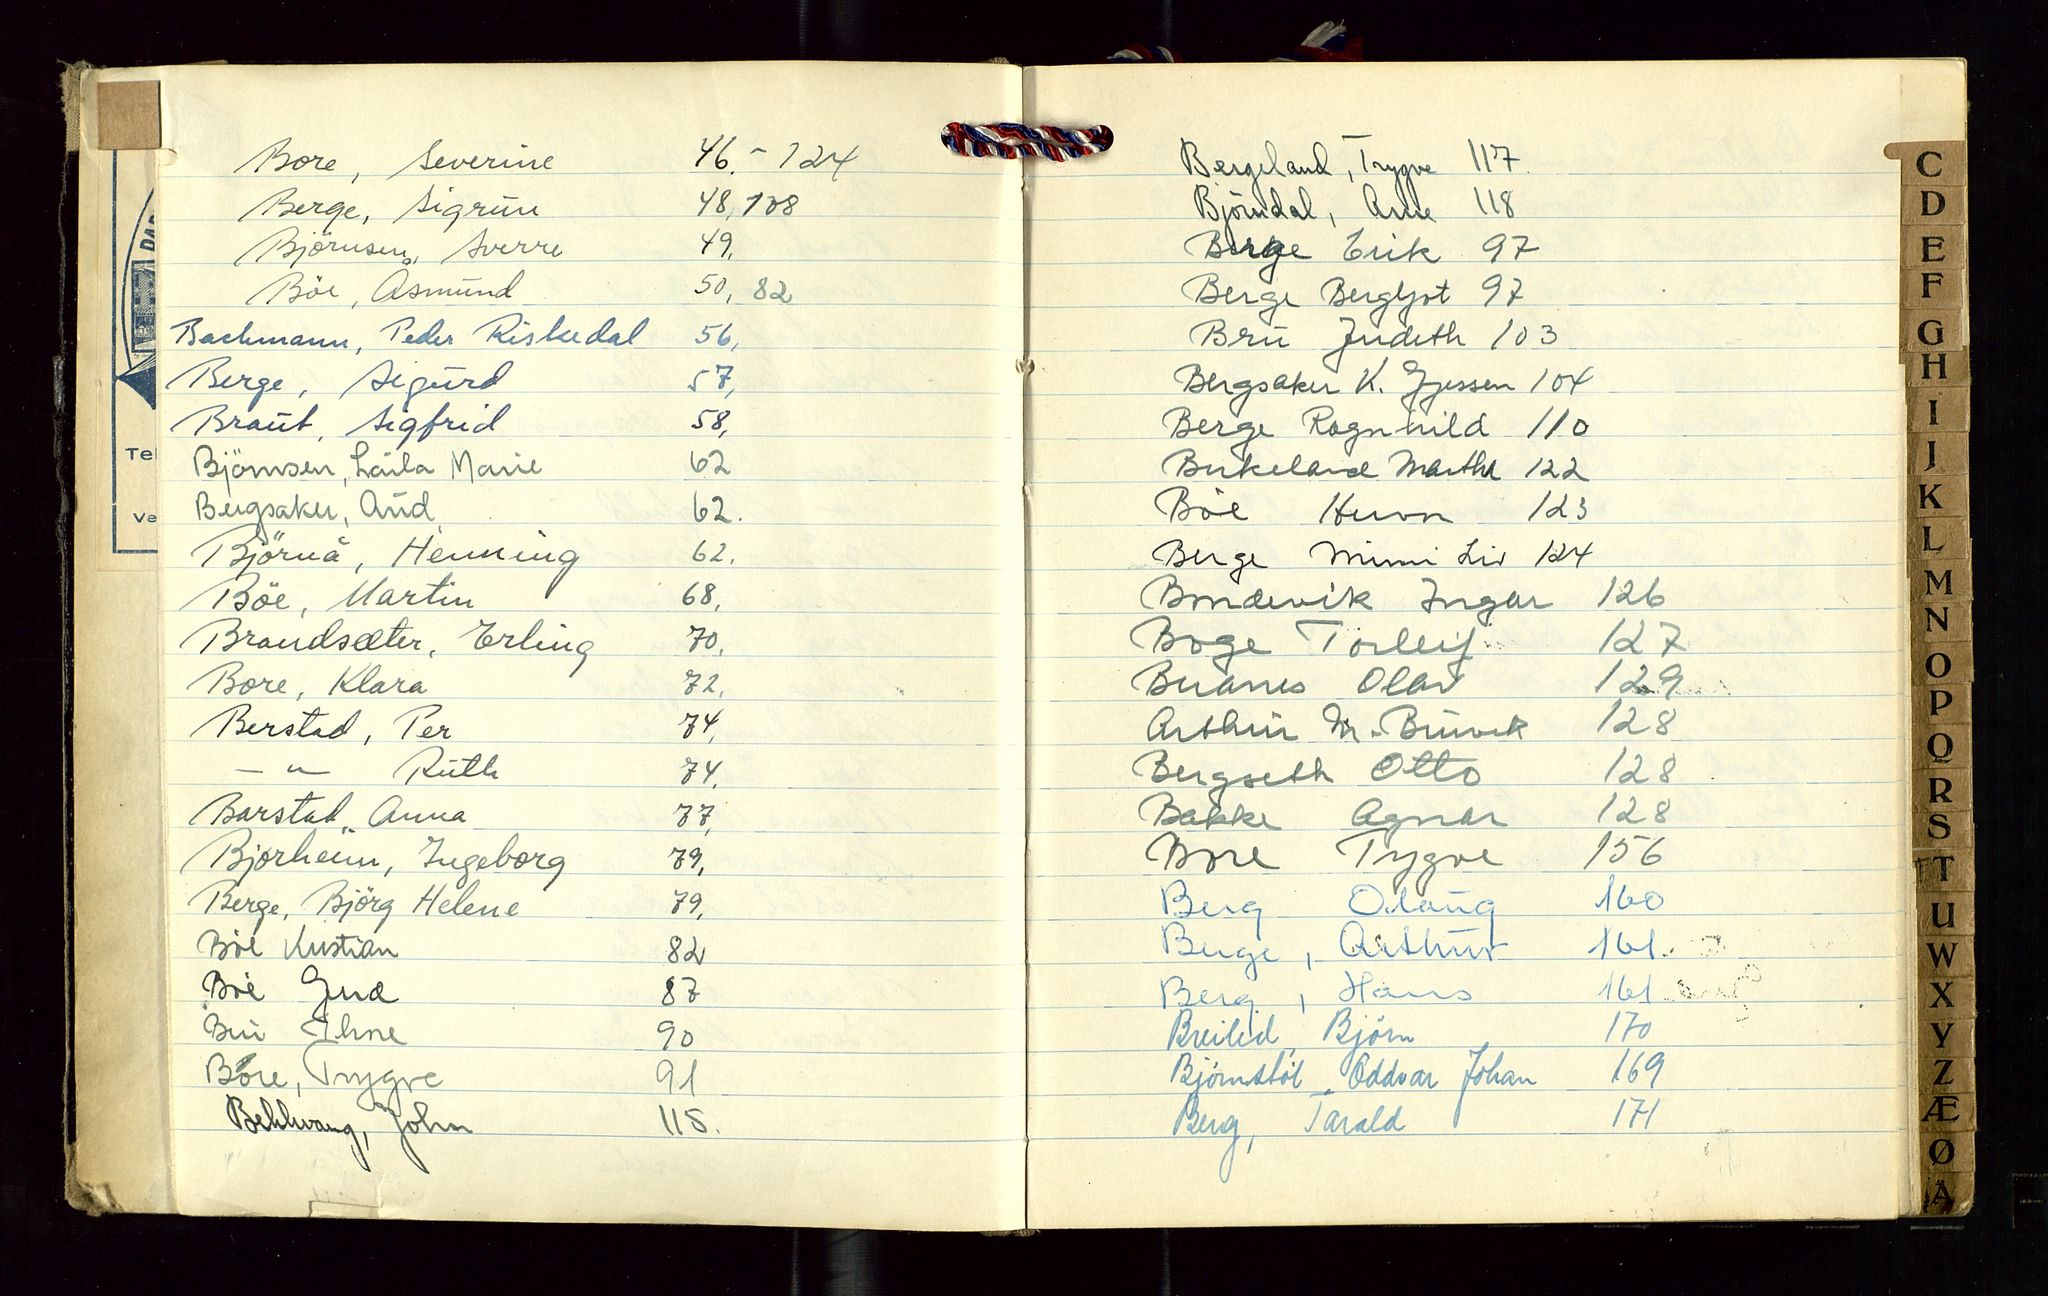 Bore, Severine 46.- 124
Berge, Sigrun 48, 108
Björnsen, Sverre 49,
Böe, Åsmund 50, 82
Bachmann, Peder Riskedal 56,
Berge, Sigurd 57,
Braut, Sigfrid 58,
Björnsen, Laila Marie 62
Bergsaker, Aud 62.
Björnå, Henning 62.
Böe, Martin 68,
Brandsæter, Erling 70,
Bore, Klara 72,
Berstad, Per 74,
— " — Ruth 74,
Barstad, Anna 77,
Bjorheim, Ingeborg 79,
Berge, Björg Helene 79,
Böe Kristian 82
Böe Gud 87
Bru 90
Bore, Trygve 91
John 115.
Tel
Ve
Bergeland, Trygve 117.
Björndal, Arne 118
Berge Erik 97
Berge Bergljot 97
Bru Judeth 103
Bergsaker K. Gjessen 104
Berge Ragnhild 110
Birkeland Marthe 122
Böe 123
Berge Mimi Liv 124
Bondevik Ingar 126
Boge Torleif 127
Buanes Olav 129
Arthur M. Buvik 128
Bergseth Otto 128
Bakke Agnar 128
Bore Trygve 156
Berg Olaug 160
Berge, Arthur 161.
Berg, Hans 161
Breilid, Björn 170
Björnstöl, Oddvar Johan 169
Berg, Tarald 171
C
D
E
F
G
H
I
J
K
L
M
N
O
P
Q
R
S
T
U
W
X
Y
Z
Æ
Ø
Å